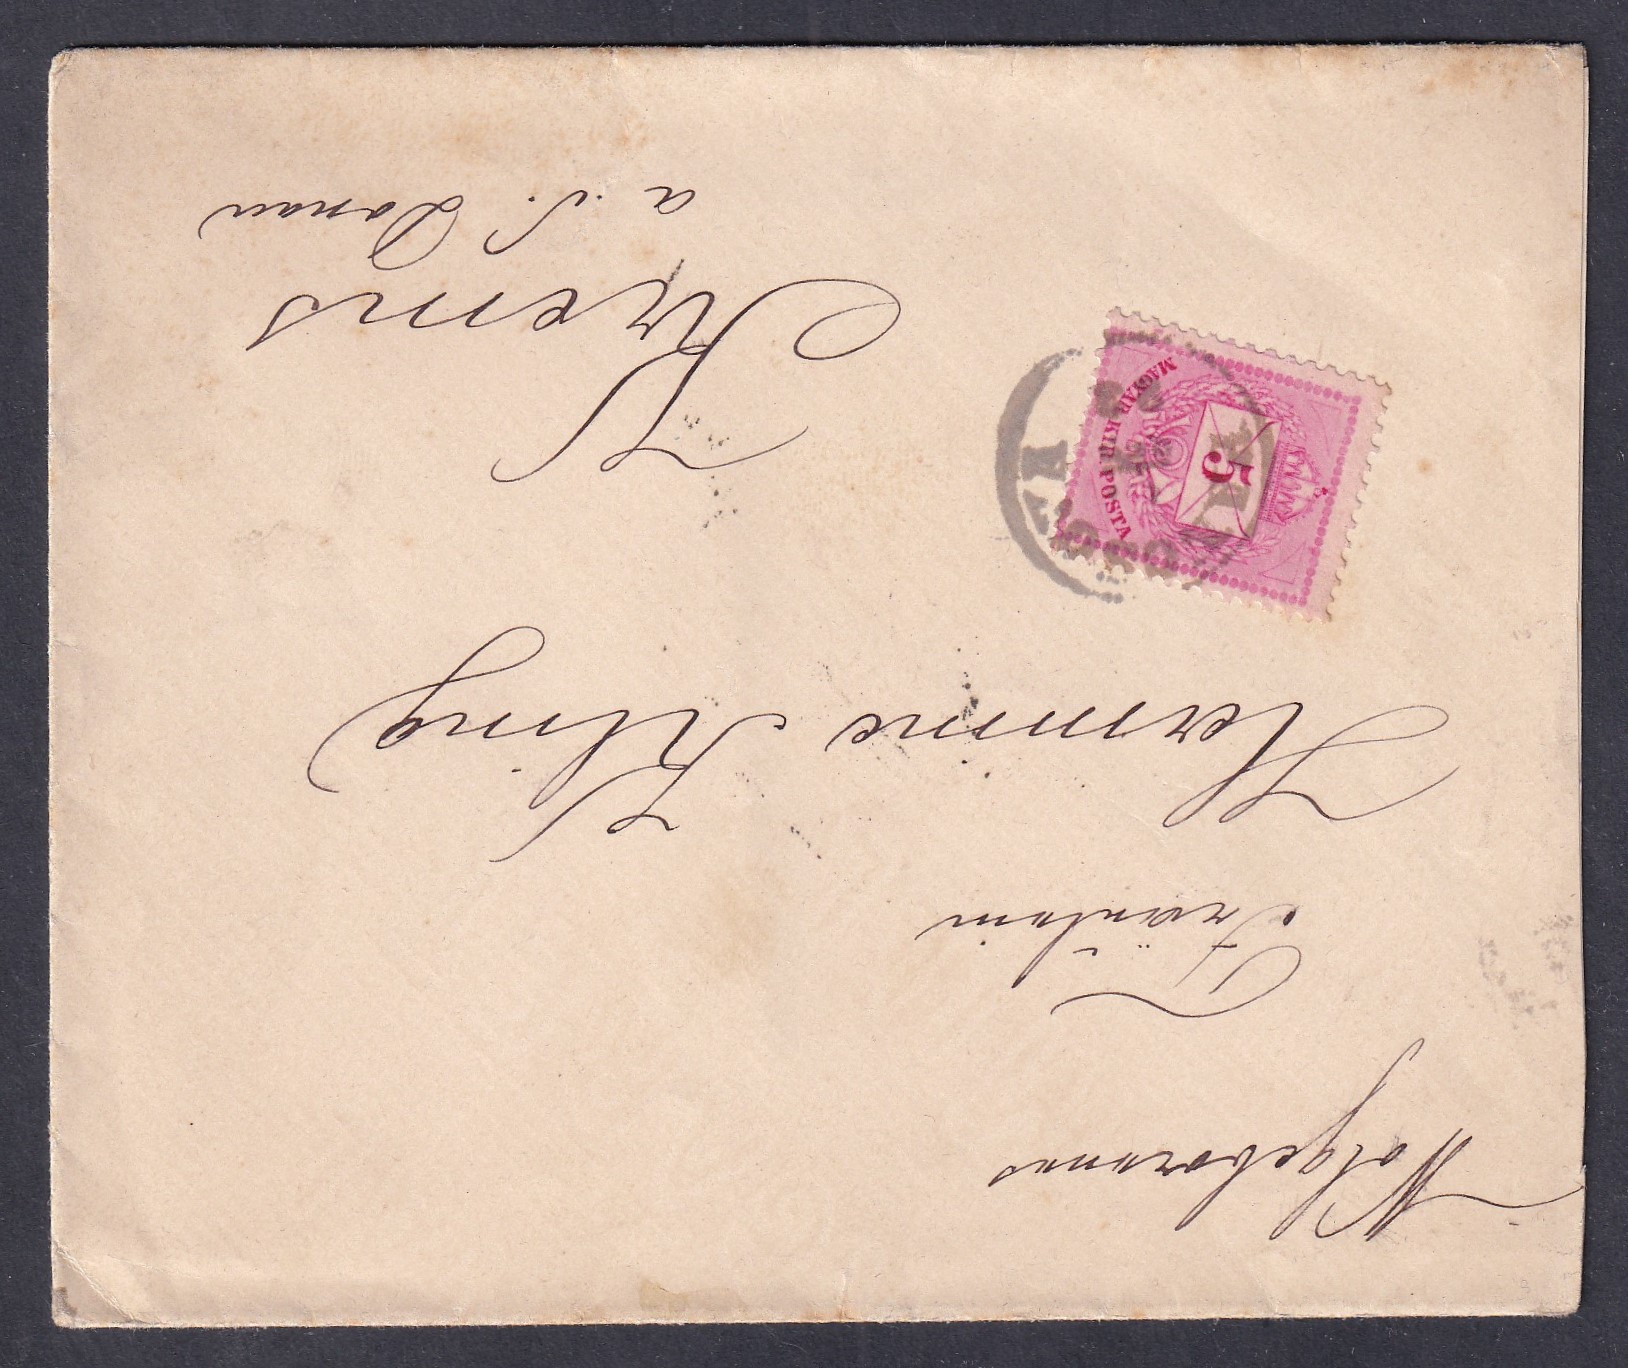 Wolgeborenes
Fräulein
Hermine Kling
Krems
a. d. Donau
MAGYAR KIR. POSTA
5